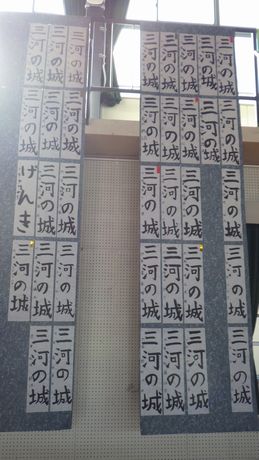 三河の城
三河の城
三河の城
三河の城
三河の城
三河の城
三河の城
三河の城
三河の城
三河の城
三河の城
三河の城
三河の城
三河の城
三河の城
三河の城
三河の城
三河の城
三河の城
三河の城
三河の城
三河の城
三河の城
三河の城
三河の城
三河の城
三河の城
三河の城
三河の城
三河の城
げんき
三河の城
三河の城
三河の城
三河の城
三河の城